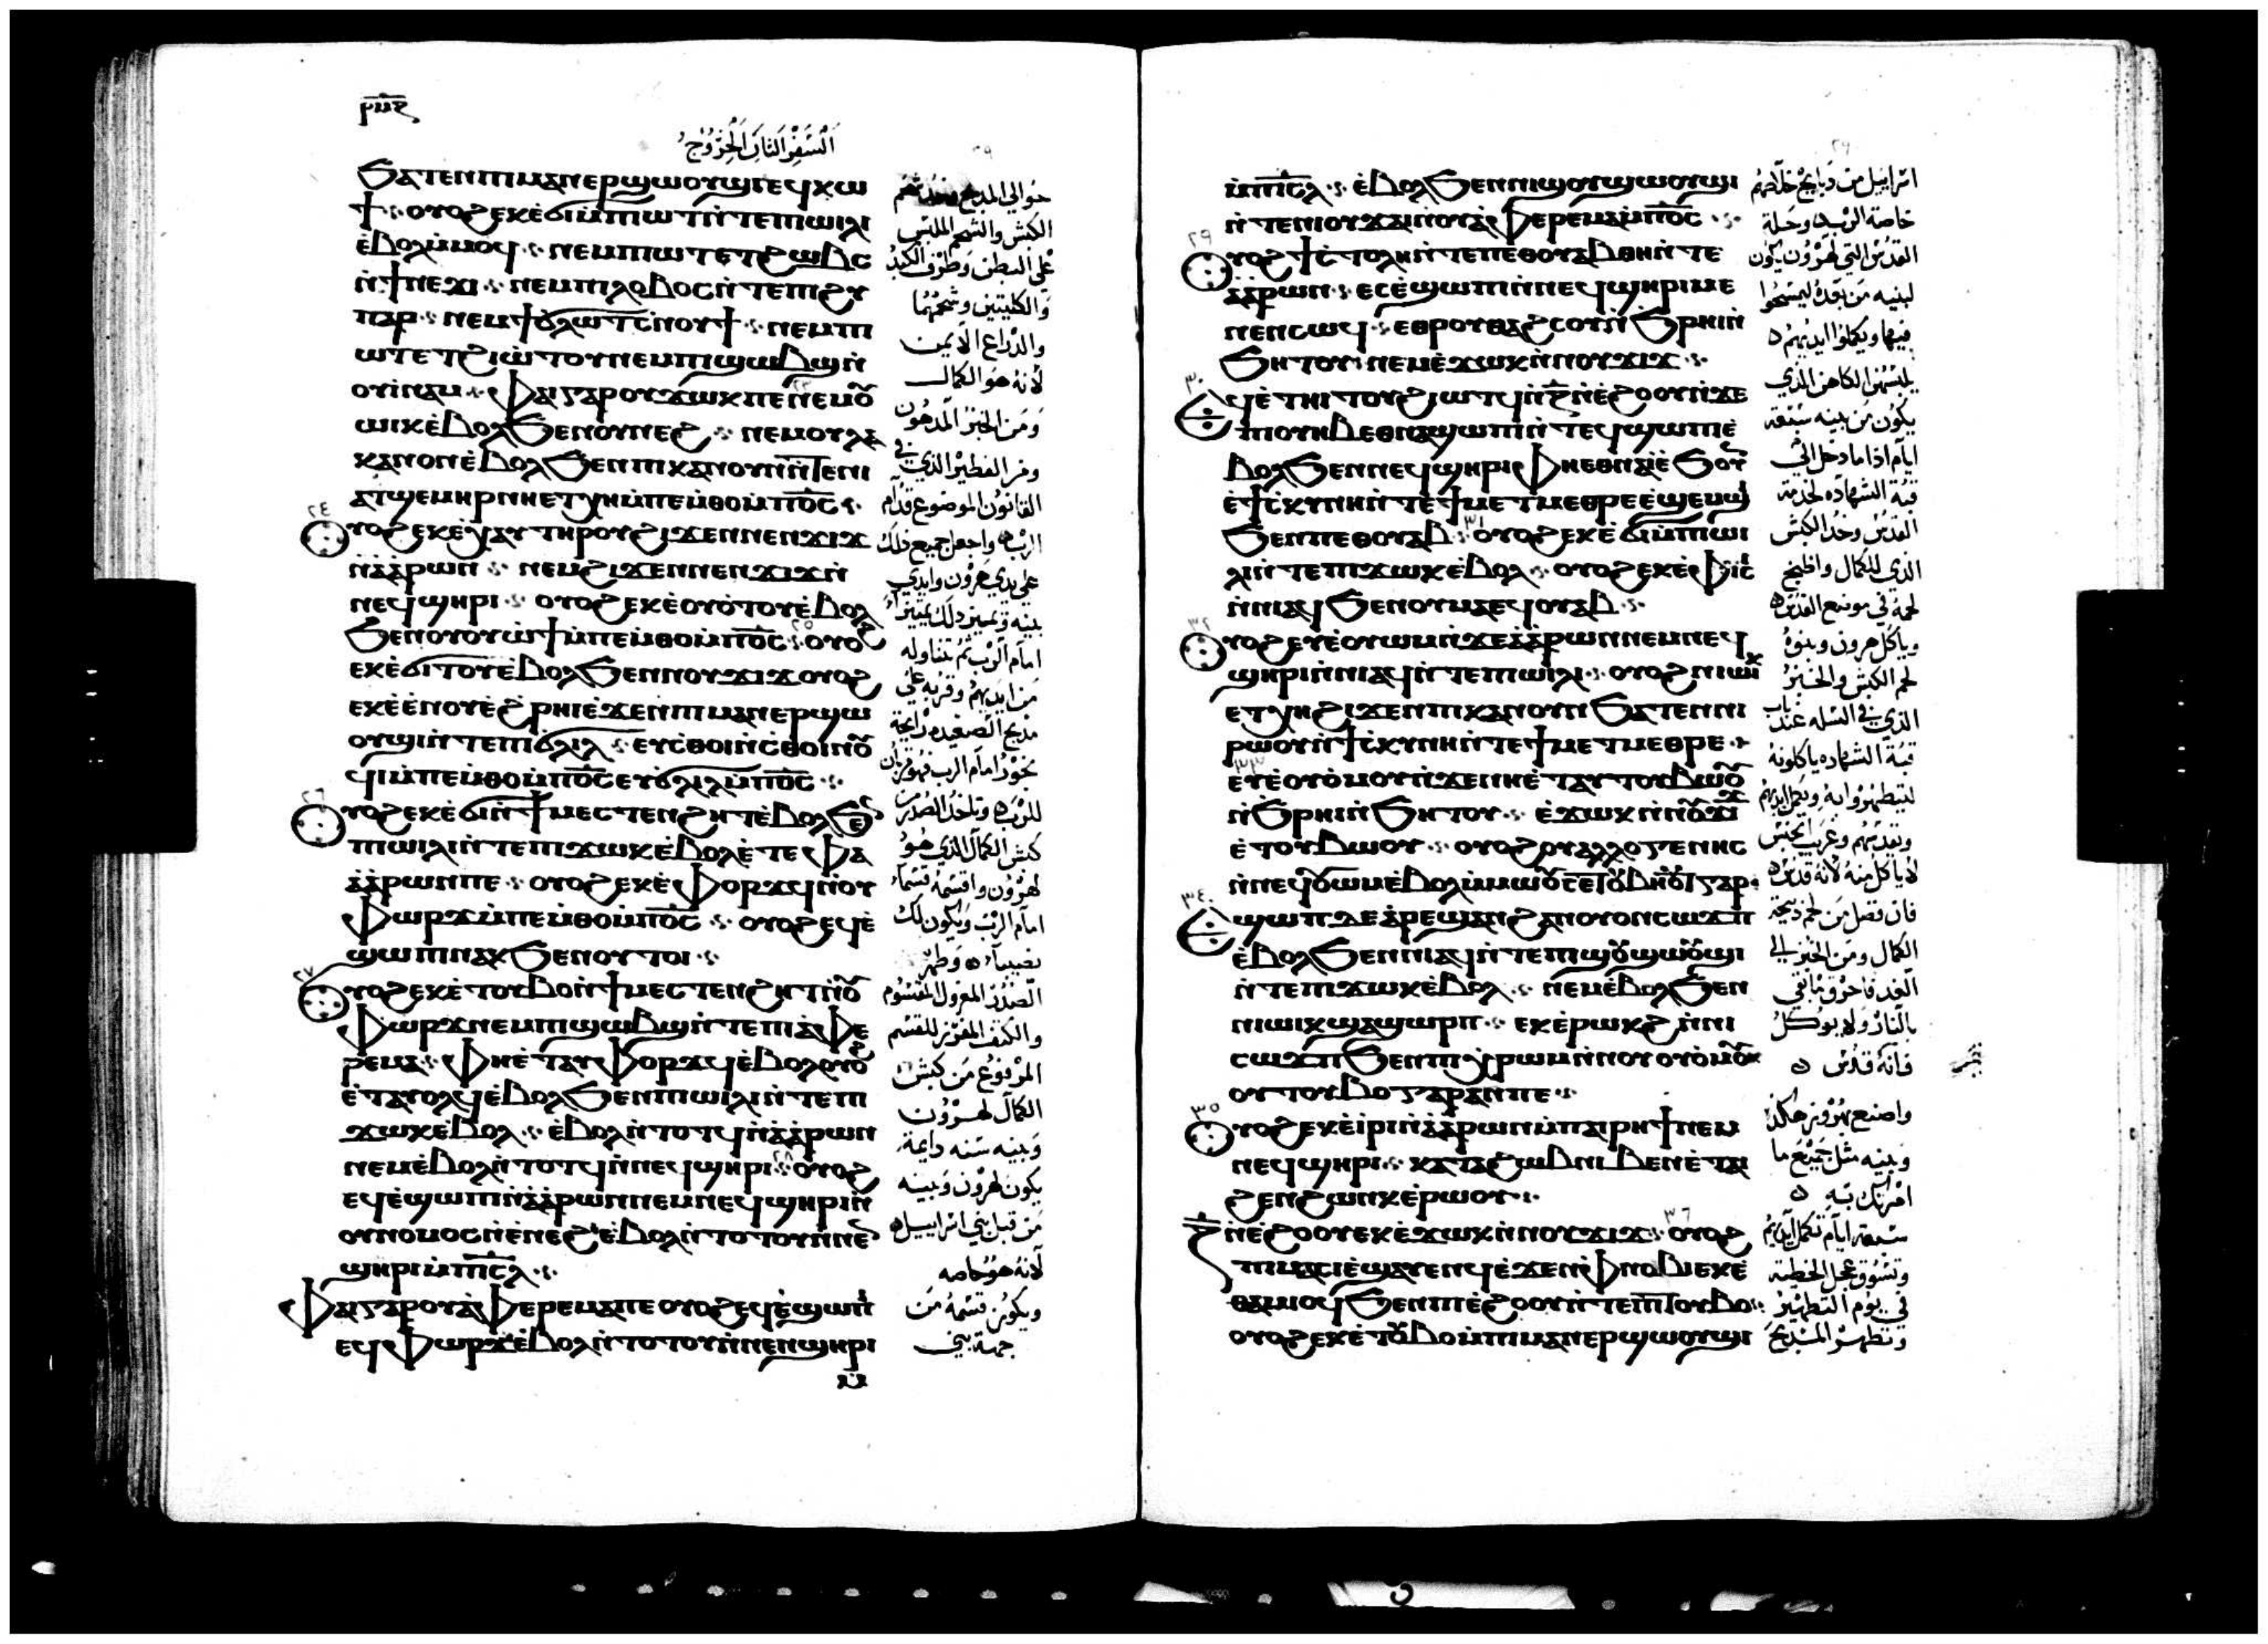 ⲣⲙⲋ
اَلسِّفْرُ الثَّانِى الْخُرُوجُ
ϧⲁⲧⲉⲛⲡⲓⲙⲁⲛⲉⲣϣⲱⲟⲩϣⲓⲉϥⲕⲱ
ϯ ⳾ ⲟⲩⲟϩⲉⲕⲉ̀ϭⲓⲙ̀ⲡⲓⲱⲧⲛ̀ⲧⲉⲡⲓⲱⲓⲗⲓ
ⲉ̀ⲃⲟⲗⲙ̀ⲙⲟϥ ⳾ ⲛⲉⲙⲡⲓⲱⲧⲉⲧϩⲱⲃⲥ
ⲛ̀ϯⲛⲉϫⲓ ⳾ ⲛⲉⲙⲡⲓⲗⲟⲃⲟⲥⲛ̀ⲧⲉⲡⲓϩⲩ
ⲡⲁⲣ ⳾ ⲛⲉⲙϯϭⲗⲱⲧⲥ̀ⲛⲟⲩϯ ⳾ ⲛⲉⲙⲡⲓ
ⲱⲧⲉⲧϩⲓⲱ̀ⲧⲟⲩⲛⲉⲙⲡⲓϣⲱⲃϣⲛ̀
ⲟⲩⲓ̀ⲛⲁⲙ ⳾ ⲫⲁⲓⲅⲁⲣⲟⲩϫⲱⲕⲡⲉ ⲛⲉⲙⲟⲩ
ⲱⲓⲕⲉ̀ⲃⲟⲗϧⲉⲛⲟⲩⲛⲉϩ ⳾ ⲛⲉⲙⲟⲩⲗⲁ
ⲕⲁⲛⲟⲛⲉ̀ⲃⲟⲗϧⲉⲛⲡⲓⲕⲁⲛⲟⲩⲛⲛ̀ⲧⲉⲛⲓ
ⲁⲧϣⲉⲙⲏⲣⲛⲏⲉⲧⲭⲏⲙ̀ⲡⲉⲙ̀ⲑⲟⲙ̀ⲡ⳪ ⳾
٢٤
ⲟⲩⲟϩⲉⲕⲉ̀ⲭⲁⲩⲧⲏⲣⲟⲩϩⲓϫⲉⲛⲛⲉⲛϫⲓϫ
ⲛ̀ⲁ̀ⲁ̀ⲣⲱⲛ ⳾ ⲛⲉⲙϩⲓϫⲉⲛⲛⲉⲛϫⲓϫⲛ̀
ⲛⲉϥϣⲏⲣⲓ ⳾ ⲟⲩⲟϩⲉⲕⲉ̀ⲟⲩⲟ̀ⲧⲟⲩⲉ̀ⲃⲟⲗ
ϧⲉⲛⲟⲩⲟⲩⲱ̀ϯⲙ̀ⲡⲉⲙ̀ⲑⲟⲙ̀ⲡ⳪ ٢٥ ⲟⲩⲟϩ
ⲉⲕⲉ̀ϭⲓⲧⲟⲩⲉ̀ⲃⲟⲗϧⲉⲛⲛⲟⲩϫⲓϫⲟⲩⲟϩ
ⲉⲕⲉ̀ⲉ̀ⲛⲟⲩⲉ̀ϩⲣⲏⲓⲉ̀ϫⲉⲛⲡⲓⲙⲁⲛⲉⲣϣⲱ
ⲟⲩϣⲓⲛ̀ⲧⲉⲡⲓϭⲗⲓⲗ ⳾ ⲉⲩⲥ̀ⲑⲟⲓⲛ̀ⲥ̀ⲑⲟⲓⲛⲟⲩ
ϥⲓⲙ̀ⲡⲉⲙ̀ⲑⲟⲙ̀ⲡ⳪ⲉⲩϭⲗⲓⲗⲙ̀ⲡ⳪ ⳾
٢٦
ⲟⲩⲟϩⲉⲕⲉ̀ϭⲓⲛ̀ϯⲙⲉⲥⲧⲉⲛϩⲏⲧⲉ̀ⲃⲟⲗϧⲉⲛ
ⲡⲓⲱⲓⲗⲓⲛ̀ⲧⲉⲡⲓϫⲱⲕⲉ̀ⲃⲟⲗⲉ̀ⲧⲉⲫⲁ
ⲁ̀ⲁ̀ⲣⲱⲛⲡⲉ ⳾ ⲟⲩⲟϩⲉⲕⲉ̀ⲫⲟⲣϫϥⲛ̀ⲟⲩ
ⲫⲱⲣϫⲙ̀ⲡⲉⲙ̀ⲑⲟⲙ̀ⲡ⳪ ⳾ ⲟⲩⲟϩⲉϥⲉ̀
ϣⲱⲡⲓⲛⲁⲕϧⲉⲛⲟⲩⲧⲟⲓ ⳾
٢٧
ⲟⲩⲟϩⲉⲕⲉ̀ⲧⲟⲩⲃⲟⲛ̀ϯⲙⲉⲥⲧⲉⲛϩⲏⲧⲛ̀ⲟⲩ
ⲫⲱⲣϫⲛⲉⲙⲡⲓϣⲱⲃϣⲛ̀ⲧⲉⲡⲓⲁ̀ⲫⲉ
ⲣⲉⲙⲁ ⳾ ⲫⲏⲉ̀ⲧⲁⲩⲫⲟⲣϫϥⲉ̀ⲃⲟⲗⲟⲩⲟϩ
ⲉ̀ⲧⲁⲩⲟⲗϥⲉ̀ⲃⲟⲗϧⲉⲛⲡⲓⲱⲓⲗⲓⲛ̀ⲧⲉⲡⲓ
ϫⲱⲕⲉ̀ⲃⲟⲗ ⳾ ⲉ̀ⲃⲟⲗⲛ̀ⲧⲟⲧϥⲛ̀ⲁ̀ⲁ̀ⲣⲱⲛ
ⲛⲉⲙⲉ̀ⲃⲟⲗⲛ̀ⲧⲟⲧϥⲛ̀ⲛⲉϥϣⲏⲣⲓ ٢٨ ⲟⲩⲟϩ
ⲉϥⲉ̀ϣⲱⲡⲓⲛ̀ⲁ̀ⲁ̀ⲣⲱⲛⲛⲉⲙⲛⲉϥϣⲏⲣⲓⲛ̀
ⲟⲩⲛⲟⲙⲟⲥⲛ̀ⲉ̀ⲛⲉϩⲉ̀ⲃⲟⲗⲛ̀ⲧⲟⲧⲟⲩⲛ̀ⲛⲉⲛ
ϣⲏⲣⲓⲙ̀ⲡⲓⲥⲗ ⳾
ⲫⲁⲓⲅⲁⲣⲟⲩⲁ̀ⲫⲉⲣⲉⲙⲁⲡⲉⲟⲩⲟϩⲉϥⲉ̀ϣⲱⲡⲓ
ⲉϥⲫⲱⲣϫⲉ̀ⲃⲟⲗⲛ̀ⲧⲟⲧⲟⲩⲛ̀ⲛⲉⲛϣⲏⲣⲓ
ⲙ̀
٢٩
حوالي المذبح
الكبش والشحم الملبس
على البطن وطرف الكبد
والكليتين وشحمهما
والذراع الايمن
لانه هو الكمال
ومن الخبز المدهون
ومن الفطير الذي في
القانون الموضوع قدام
الرب واجعل جميع ذلك
على يدي هرون وايدي
بنيه وتميز ذلك تمييزا
امام الرب ثم تتناوله
من ايديهم وقربه على
مذبح الصعيده رايحة
بخور امام الرب فهو قربان
للرب وتاخذ الصدر من
كبش الكمال الذي هو
لهرون واقسمه قسما
امام الرب ويكون لك
نصيبا وطهر
الصدر المعزول المقسوم
والكتف المفرز للقسم
المرفوع من كبش
الكمال لهرون
وبنيه سنه دايمة
يكون لهرون وبنيه
من قبل بني اسراييل
لانه هو خاصه
ويكون قسمه من
جهة بني
ⲙ̀ⲡⲓⲥⲗ ⳾ ⲉ̀ⲃⲟⲗϧⲉⲛⲛⲓϣⲟⲩϣⲱⲟⲩϣⲓ
ⲛ̀ⲧⲉⲛⲓⲟⲩϫⲁⲓⲛ̀ⲟⲩⲁ̀ⲫⲉⲣⲉⲙⲁⲙ̀ⲡ⳪ ⳾
٢٩
ⲟⲩⲟϩϯⲥ̀ⲧⲟⲗⲏⲛ̀ⲧⲉⲡⲉⲑⲟⲩⲁⲃⲑⲏⲛ̀ⲧⲉ
ⲁ̀ⲁ̀ⲣⲱⲛ ⳾ ⲉⲥⲉ̀ϣⲱⲡⲓⲛ̀ⲛⲉϥϣⲏⲣⲓⲙⲉ
ⲛⲉⲛⲥⲱϥ ⳾ ⲉⲑⲣⲟⲩⲑⲁϩⲥⲟⲩⲛ̀ϧⲣⲏⲓⲛ̀
ϧⲏⲧⲟⲩⲛⲉⲙⲉ̀ϫⲱⲕⲛ̀ⲛⲟⲩϫⲓϫ ⳾
٣٠
ⲉϥⲉ̀ⲧⲏⲓⲧⲟⲩϩⲓⲱⲧϥⲛ̀ⲍⲛ̀ⲉ̀ϩⲟⲟⲩⲛ̀ϫⲉ
ⲡⲓⲟⲩⲏⲃⲉⲑⲛⲁϣⲱⲡⲓⲛ̀ⲧⲉϥϣⲱⲡⲉ̀
ⲃⲟⲗϧⲉⲛⲛⲉϥϣⲏⲣⲓⲫⲏⲉⲑⲛⲁⲉ̀ϧⲟⲩ
ⲉ̀ϯⲥ̀ⲕⲩⲛⲏⲛ̀ⲧⲉϯⲙⲉⲧⲙⲉⲑⲣⲉⲉ̀ϣⲉⲙϣⲓ
ϧⲉⲛⲡⲉⲑⲟⲩⲁⲃ ٣١ ⲟⲩⲟϩⲉⲕⲉ̀ϭⲓⲙ̀ⲡⲓⲱⲓ
ⲗⲓⲛ̀ⲧⲉⲡⲓϫⲱⲕⲉ̀ⲃⲟⲗ ⳾ ⲟⲩⲟϩⲉⲕⲉ̀ⲫⲓⲥ
ⲛ̀ⲛⲓⲁϥϧⲉⲛⲟⲩⲙⲁⲉϥⲟⲩⲁⲃ ⳾
٣٢
ⲟⲩⲟϩⲉⲩⲉ̀ⲟⲩⲱⲙⲛ̀ϫⲉⲁ̀ⲁ̀ⲣⲱⲛⲛⲉⲙⲛⲉϥ
ϣⲏⲣⲓⲛ̀ⲛⲓⲁϥⲛ̀ⲧⲉⲡⲓⲱⲓⲗⲓ ⳾ ⲟⲩⲟϩⲛⲓⲱⲓⲕ
ⲉⲧⲭⲏϩⲓϫⲉⲛⲡⲓⲕⲁⲛⲟⲩⲛ ϧⲁⲧⲉⲛⲛⲓ
ⲣⲱⲟⲩⲛ̀ϯⲥ̀ⲕⲩⲛⲏⲛ̀ⲧⲉϯⲙⲉⲧⲙⲉⲑⲣⲉ ⳾
٣٣
ⲉⲩⲉ̀ⲟⲩⲟ̀ⲙⲟⲩⲛ̀ϫⲉⲛⲏⲉ̀ⲧⲁⲩⲧⲟⲩⲃⲱⲟⲩ
ⲛ̀ϧⲣⲏⲓⲛ̀ϧⲏⲧⲟⲩ ⳾ ⲉ̀ϫⲱⲕⲛ̀ⲛⲟⲩϫⲓϫ
ⲉ̀ⲧⲟⲩⲃⲱⲟⲩ ⳾ ⲟⲩⲟϩⲟⲩⲁⲗⲗⲟⲅⲉⲛⲏⲥ
ⲛ̀ⲛⲉϥⲟⲩⲱⲙⲉ̀ⲃⲟⲗⲙ̀ⲙⲱⲟⲩⲥⲉⲧⲟⲩⲃⲏⲟⲩⲧⲅⲁⲣ
٣٤
ⲉϣⲱⲡⲇⲉⲁ̀ⲣⲉϣⲁⲛϩⲁⲛⲟⲩⲟⲛⲥⲱϫⲡ
ⲉ̀ⲃⲟⲗϧⲉⲛⲛⲓⲁϥⲛ̀ⲧⲉⲡⲓϣⲟⲩϣⲱⲟⲩϣⲓ
ⲛ̀ⲧⲉⲡⲓϫⲱⲕⲉ̀ⲃⲟⲗ ⳾ ⲛⲉⲙⲉ̀ⲃⲟⲗϧⲉⲛ
ⲛⲓⲱⲓⲕϣⲁϣⲱⲣⲡ ⳾ ⲉⲕⲉ̀ⲣⲱⲕϩⲛ̀ⲛⲓ
ⲥⲱϫⲡϧⲉⲛⲡⲓⲭ̀ⲣⲱⲙⲛ̀ⲛⲟⲩⲟⲩⲟ̀ⲙⲟⲩ
ⲟⲩⲧⲟⲩⲃⲟⲅⲁⲣⲁⲛⲡⲉ ⳾
٣٥
ⲟⲩⲟϩⲉⲕⲉ̀ⲓ̀ⲣⲓⲛ̀ⲁ̀ⲁ̀ⲣⲱⲛⲙ̀ⲡⲁⲓⲣⲏϯⲛⲉⲙ
ⲛⲉϥϣⲏⲣⲓ ⳾ ⲕⲁⲧⲁϩⲱⲃⲛⲓⲃⲉⲛⲉ̀ⲧⲁⲓ
ϩⲉⲛϩⲱⲛⲕⲉ̀ⲣⲱⲟⲩ ⳾
ⲍⲛ̀ⲉ̀ϩⲟⲟⲩⲉⲕⲉ̀ϫⲱⲕⲛ̀ⲛⲟⲩϫⲓϫ ٣٦ ⲟⲩⲟϩ
ⲡⲓⲙⲁⲥⲓⲉ̀ϣⲁⲩⲉⲛϥⲉ̀ϫⲉⲛⲫⲛⲟⲃⲓⲉⲕⲉ̀
ⲑⲁⲙⲓⲟϥϧⲉⲛⲡⲓⲉ̀ϩⲟⲟⲩⲛ̀ⲧⲉⲡⲓⲧⲟⲩⲃⲟ ⳾
ⲟⲩⲟϩⲉⲕⲉ̀ⲧⲟⲩⲃⲟⲙ̀ⲡⲓⲙⲁⲛⲉⲣϣⲱⲟⲩϣⲓ
٢٩
اسراييل من ذبايح خلاصهم
خاصة الرب وحلة
القدس التي لهرون يكون
لبنيه من بعده ليمسحوا
فيها ويكملوا ايديهم
يلبسهن الكاهن الذي
يكون من بنيه سبعة
ايام اذا ما دخل الى
قبة الشهاده لخدمة
القدس وخذ الكبش
الذي للكمال واطبخ
لحمه في موضع القدس
وياكل هرون وبنوه
لحم الكبش والخبز
الذي في السله عند باب
قبة الشهاده ياكلونه
ليتطهروا به ويكمل ايديهم
وتقدسهم وغريب الجنس
لا ياكل منه لانه قدس
فان فضل من لحم ذبيحة
الكمال ومن الخبز الى
الغد فاحرق ما بقي
بالنار ولا يوكل
فانه قدس
واصنع بهرون هكذا
وبنيه مثل جميع ما
امرتك به
سبعة ايام تكمل ايديهم
وتسوق عجل الخطية
في يوم التطهير
وتطهر المذبح